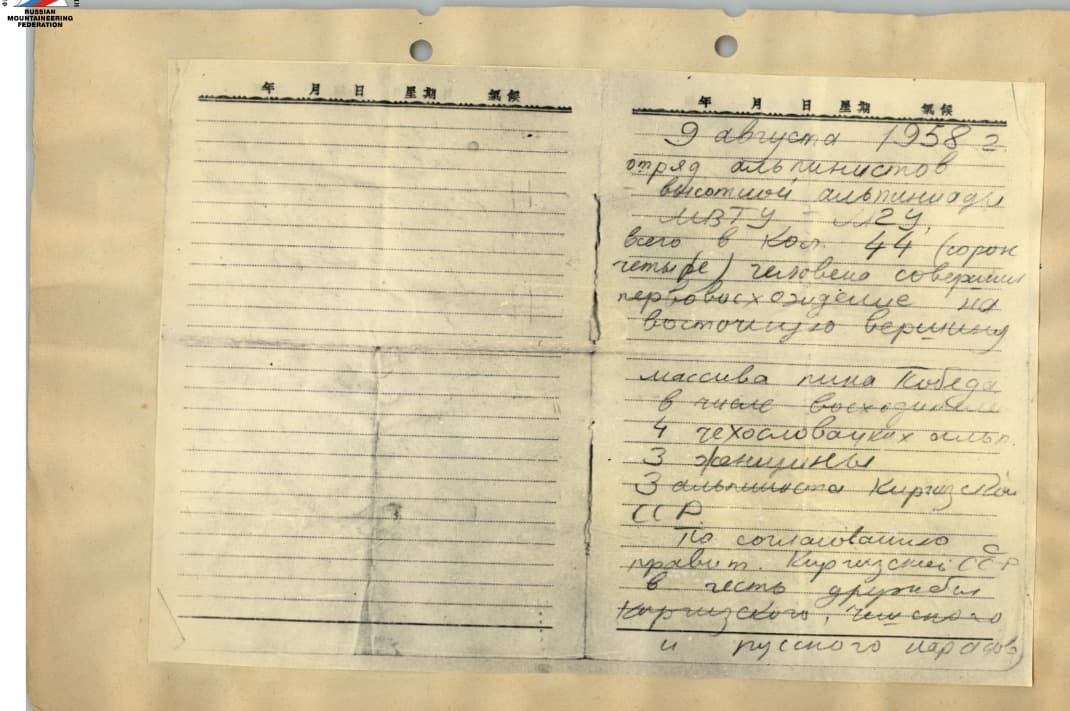 RUSSIAN
MOUNTAINEERING
FEDERATION
年 月 日 星期 氣候
年 月 日 星期 氣候
9 августа 1958 г.
отряд альпинистов
высотной альпиниады
МВТУ - МГУ,
всего в кол. 44 (сорок
четыре) человека совершил
первовосхождение на
восточную вершину
массива пика Победа
в числе восходителей
4 чехословацких альп.
3 женщины
3 альпиниста Киргизской
ССР
По согласованию с
правит. Киргизской ССР
в честь дружбы
Киргизского, Чешского
и русского народов